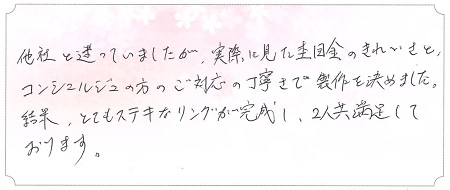 他社と迷っていましたが、実際に見た杢目金のきれいさと、
コンシェルジュの方のご対応の丁寧さで製作を決めました。
結果、とてもステキなリングが完成し、2人共満足して
おります。